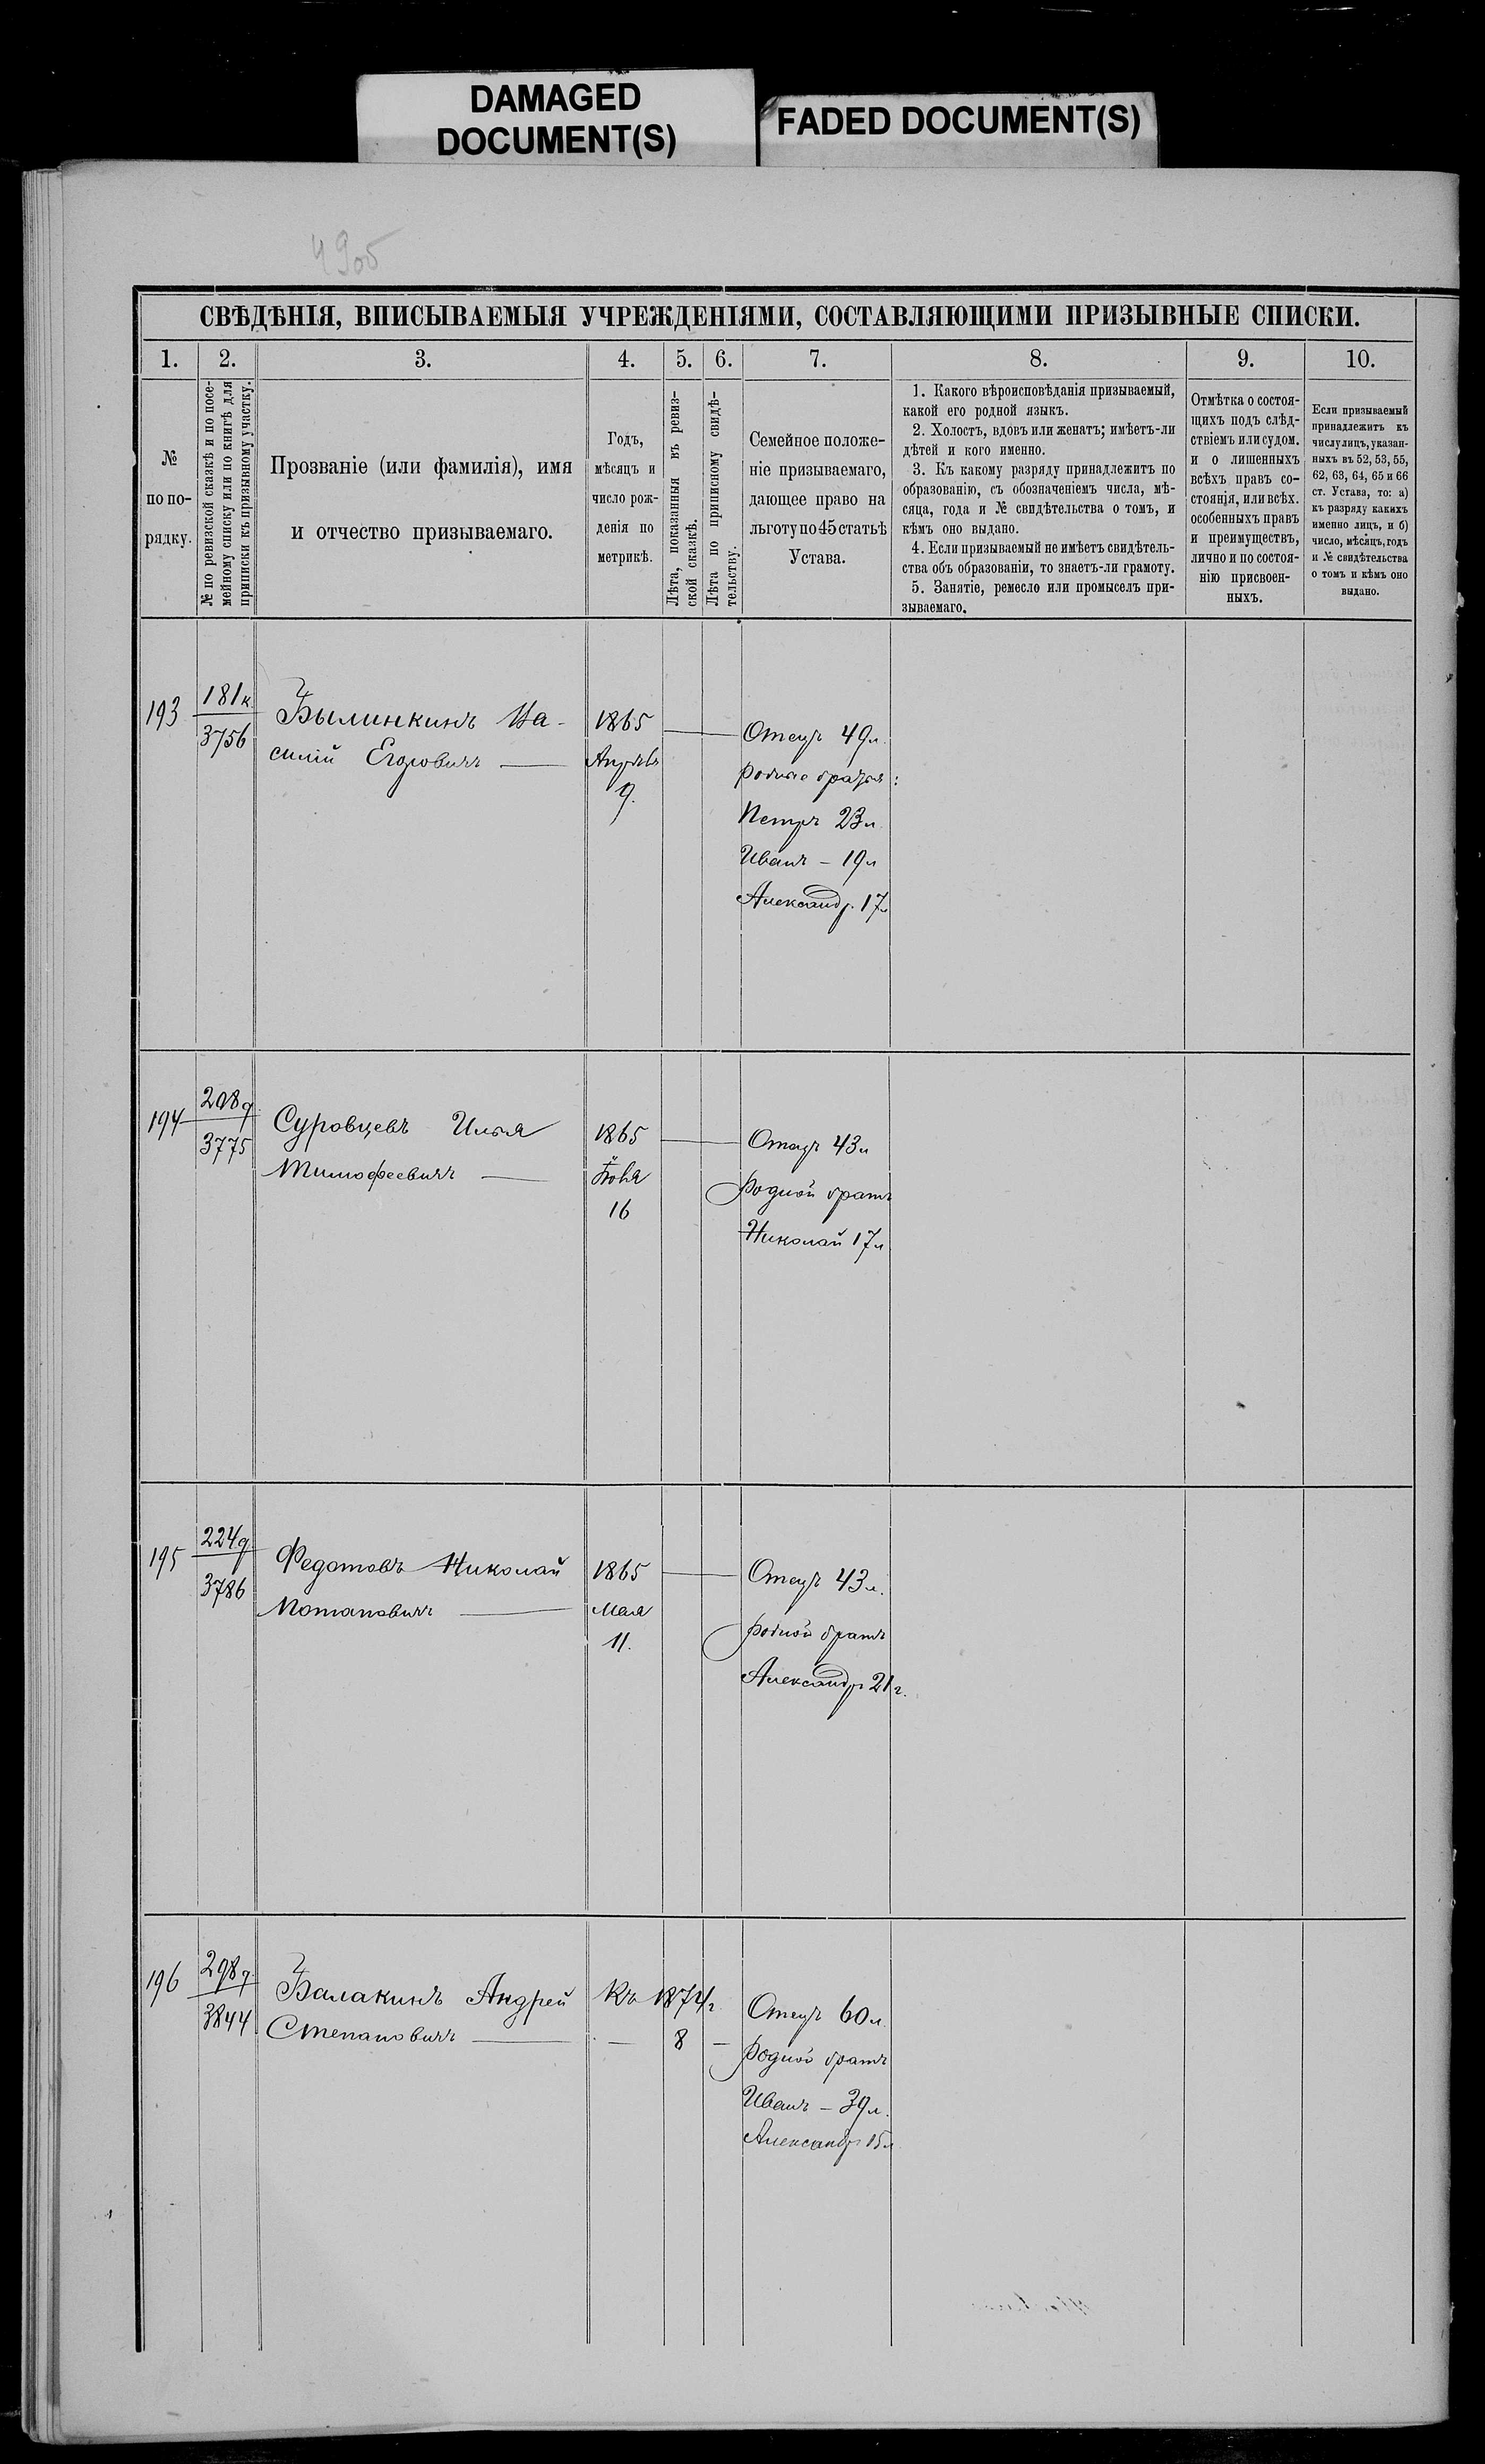 DAMAGED
DOCUMENT(S)
FADED DOCUMENT(S)
4905
СВѢДѢНІЯ, ВПИСЫВАЕМЫЯ УЧРЕЖДЕНІЯМИ, СОСТАВЛЯЮЩИМИ ПРИЗЫВНЫЕ СПИСКИ.
1. 2. 3. 4. 5. 6. 7. 8. 9. 10.
№
по по-
рядку.
№ по ревизской сказкѣ и по посе-
мейному списку или по книгѣ для
приписки къ призывному участку.
Прозваніе (или фамилія), имя
и отчество призываемаго.
Годъ,
мѣсяцъ и
число рож-
денія по
метрикѣ.
Лѣта, показанныя въ ревиз-
ской сказкѣ.
Лѣта по приписному свидѣ-
тельству.
Семейное положе-
ніе призываемаго,
дающее право на
льготу по 45 статьѣ
Устава.
1. Какого вѣроисповѣданія призываемый,
какой его родной языкъ.
2. Холостъ, вдовъ или женатъ; имѣетъ-ли
дѣтей и кого именно.
3. Къ какому разряду принадлежитъ по
образованію, съ обозначеніемъ числа, мѣ-
сяца, года и № свидѣтельства о томъ, и
кѣмъ оно выдано.
4. Если призываемый не имѣетъ свидѣтель-
ства объ образованіи, то знаетъ-ли грамоту.
5. Занятіе, ремесло или промыселъ при-
зываемаго.
Отмѣтка о состоя-
щихъ подъ слѣд-
ствіемъ или судом.
и о лишенныхъ
всѣхъ правъ со-
стоянія, или всѣх.
особенныхъ правъ
и преимуществъ,
лично и по состоя-
нію присвоен-
ныхъ.
Если призываемый
принадлежитъ къ
числу лицъ, указан-
ныхъ въ 52, 53, 55,
62, 63, 64, 65 и 66
ст. Устава, то: а)
къ разряду какихъ
именно лицъ, и б)
число, мѣсяцъ, годъ
и № свидѣтельства
о томъ и кѣмъ оно
выдано.
193
181к
3756
Былинкинъ Ва-
силій Егоровичъ
1865
Апрѣля
9.
Отецъ 49л.
родные братья:
Петръ 23л
Иванъ – 19л
Александр. 17л
194
208д
3775
Суровцевъ Илья
Тимофеевичъ
1865
16
Отецъ 43л
Родной братъ
Николай 17л
195
224д
3786
Федотовъ Николай
Потаповичъ
1865
Мая
11.
Отецъ 43л.
родной братъ
Александръ 21г.
196
298д
3844
Балакинъ Андрей
Степановичъ
Къ 1874г.
— 8 —
Отецъ 60л.
Родной братъ
Иванъ – 39л.
Александръ 15л